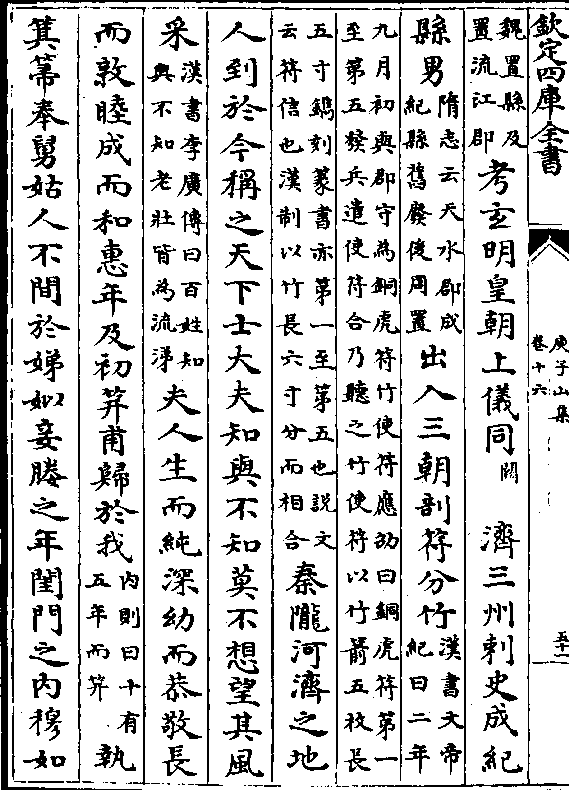 欽定四庫全書
庾子山集
卷十六
五十一
魏置縣及置流江郡考玄明皇朝上儀同闕 濟三州刺史成紀
縣男隋志云天水郡成紀縣舊廢後周置出入三朝剖符分竹漢書文帝紀曰二年
九月初與郡守為銅虎符竹使符應劭曰銅虎符第一至第五發兵遣使符合乃聽之竹使符以竹箭五枚長
五寸鐫刻篆書亦第一至第五也説文云符信也漢制以竹長六寸分而相合秦隴河濟之地
人到於今稱之天下士大夫知與不知莫不想望其風
采漢書李廣傳曰百姓知與不知老壯皆為流涕夫人生而純深幼而恭敬長
而敦睦成而和惠年及初笄甫歸於我内則曰十有五年而笄執
箕箒奉舅姑人不間於娣姒妾媵之年閨門之内穆如